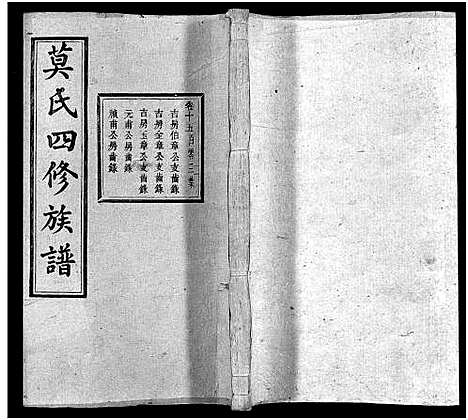 莫氏四修族譜
卷十五目錄三
吉房伯章公支齒錄
吉房金章公支齒錄
吉房玉章公支齒錄
元甫公房齒錄
禎甫公房齒錄